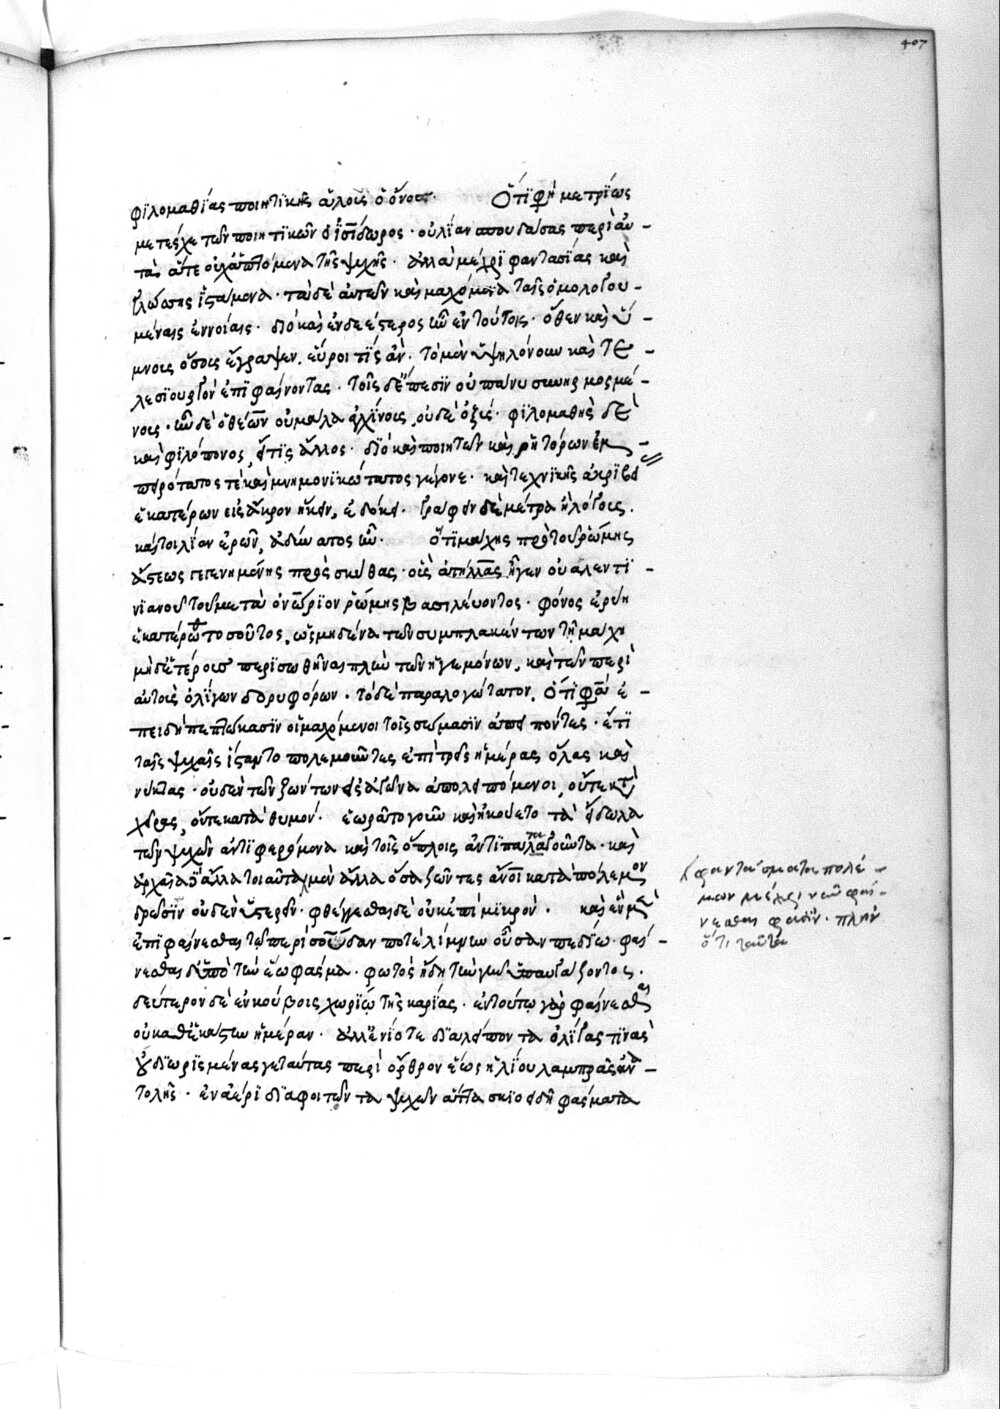 407
φϊλομαθίας ποιητϊκῆς ἄλοϊς ὁ ὄνος. Ὅτϊ φη μετρΐως
μετέχε τῶν ποιητϊκῶν ὁ ἰσίδωρος· οὐ λίαν σπουδάσας περὶ αὐ-
τὰ ἅτε οὐχ ἁπτόμενα τῆς ψυχῆς· ἀλλὰ μέχρϊ φαντασίας καὶ
γλώσσης ἱστάμενα· τὰ δὲ αὐτῶν καὶ μαχόμενα ταῖς ὁμολογου-
μέναις ἐννοίαις· διὸ καὶ ἐνδεέστερος ὢν ἐν τούτοις· ὅθεν καὶ ὕ-
μνοις ὅσοις ἔγραψεν, εὕροι τίς ἂν· τὸ μὲν ὑψηλόνουν καὶ τε-
λεσϊουργὸν ἐπϊφαίνοντας· τοῖς δὲ ἔπεσϊν οὐ πάνυ συνηρμοσμέ-
νοις· ὢν δὲ ὀθείων οὐ μάλα ἀγχίνοις, οὐδὲ ὀξὺς· φϊλομαθὴς δὲ
καὶ φϊλόπονος, εἴ τϊς ἄλλος· διὸ καὶ ποιητῶν καὶ ῥητόρων ἐμ-
πειρότατος τὲ καὶ μνημονϊκώτατος γέγονε· καὶ τεχνϊκῆς ἀκρϊβεί
ἑκατέρων εἰς ἄκρον ἥκειν, ἐδόκει· γράφειν δὲ μέτρα ἢ λόγους.
καί τοι λίαν ἐρῶν, ἀδύνατος ὤν· Ὅτϊ μάχης πρὸ τοῦ ῥώμης
ἄστεως γεγενημένης πρὸς σκύθας· οὓς ἀττήλας ἦγεν οὐαλεντϊ-
νϊανοῦ τοῦ μετὰ ὀνώρϊον ῥώμης βασιλεύοντος· φόνος ἐρρύη
ἑκατέρωθεν τοσοῦτος, ὡς μηδένα τῶν συμπλακέντων τῇ μάχῃ
μηδετέροις περϊσωθῆναι πλὴν τῶν ἡγεμόνων, καὶ τῶν περὶ
αὐτοὺς ὀλίγων δορυφόρων· τὸ δὲ παραλογώτατον, Ὅτϊ φασὶ ἐ-
πειδὴ πεπτώκασϊν οἱ μαχόμενοι τοῖς σώμασϊν ἀπειπόντες· ἔτϊ
ταῖς ψυχαῖς ἵσταντο πολεμοῦντες ἐπὶ τρεῖς ἡμέρας ὅλας καὶ
νύκτας· οὐδὲν τῶν ζώντων εἰς ἀγῶνα ἀπολειπόμενοι, οὔτε κατὰ
χεῖρας, οὔτε κατὰ θυμόν· ἑωρᾶτο γοῦν καὶ ἠκούετο τὰ εἴδωλα
τῶν ψυχῶν ἀντϊφερόμενα καὶ τοῖς ὅπλοις ἀντϊπαταγοῦντα· καὶ
ἀρχαῖα δ᾽ ἄλλα τοιαῦτα μὲν ἀλλὰ ὅσα ζῶντες ἄνοι κατὰ πόλεμον
δρῶσϊν οὐδὲν ὑστερεῖν· φθέγγεσθαι δὲ οὐκ ἐπὶ μϊκρὸν· καὶ ἓν μὲν
ἐπϊφαίνεσθαι τῷ περὶ σόγδαν ποτὲ λίμνην οὖσαν πεδίῳ· φαί-
νεσθαι δ᾽ ὑπὸ τὴν ἕω φάσμα· φωτὸς ἤδη τὴν γῆν ὑπαυγάζοντος.
δεύτερον δὲ ἐν κούρβοις χωρίῳ τῆς καρίας· ἐν τούτῳ γὰρ φαίνεσθαι
οὐ καθ᾽ ἑκάστην ἡμέραν· ἀλλ᾽ ἐνίοτε διαλείπον τα ὀλίγας τινὰς
οὐ διωρϊσμένας γε ταύτας περὶ ὄρθρον ἕως ἡλίου λαμπρᾶς ἀνα-
τολῆς· ἐν ἀέρϊ διαφοιτῶντα ψυχῶν ἄττα σκϊοειδῆ φάσματα
φαντάσματα πολέ-
μων μέχρι νῦν φαί-
νεσθαι φασϊν· πλὴν
ὅτι ταῦτα